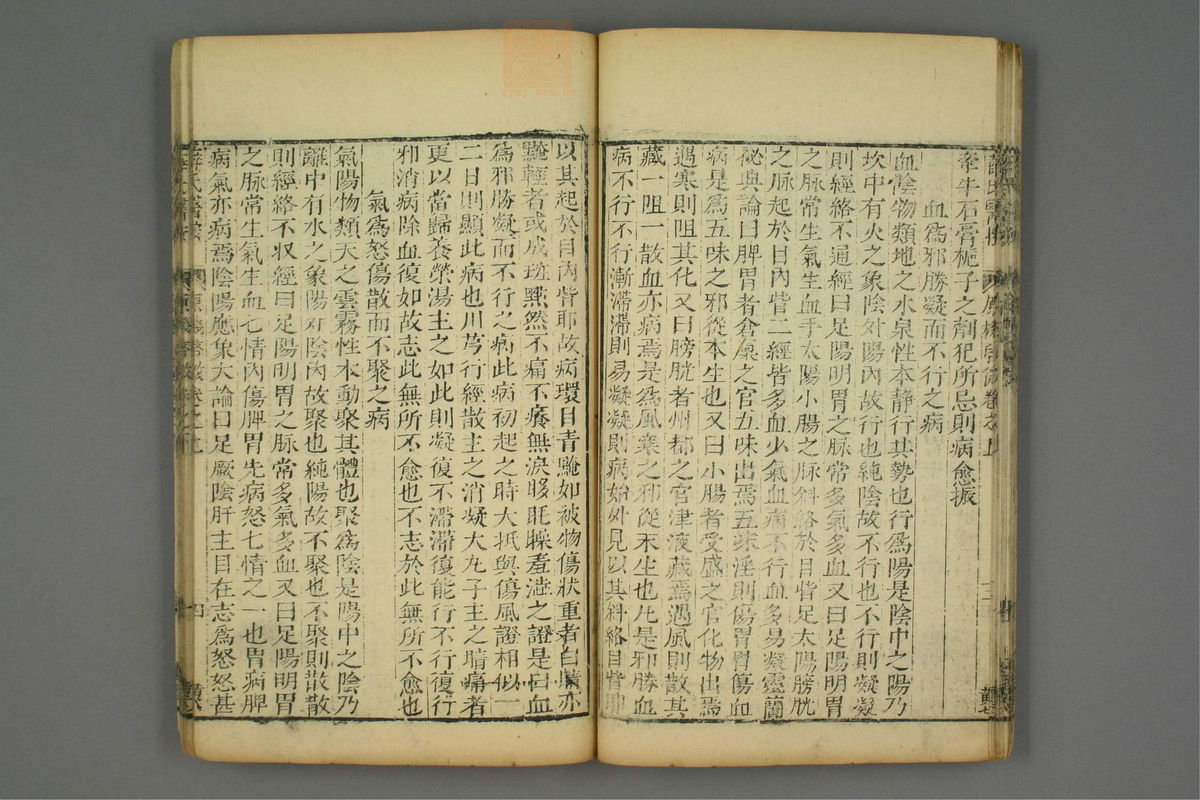 牽牛石膏梔子之劑犯所忌則病愈振
血為邪勝凝而不行之病
血陰物類地之水泉性本静行其勢也行為陽是陰中之陽乃
坎中有火之象陰外陽內故行也純陰故不行也不行則凝凝
則經絡不通經曰足陽明胃之脉常多氣多血又曰足陽明胃
之脉常生氣生血手太陽小腸之脉斜絡於目眥足太陽膀胱
之脉起於目內眥二經皆多血少氣血病不行血多易凝靈蘭
秘典論曰脾胃者倉廩之官五味出焉五味淫則傷胃胃傷血
病是為五味之邪從本生也又曰小腸者受盛之官化物出焉
遇寒則阻其化又曰膀胱者州都之官津液藏焉遇風則散其
藏一阻一散血亦病焉是為風寒之邪從末生也凡是邪勝血
病不行不行漸滯滯則易凝凝則病始外見以其斜絡目眥耶
以其起於目內眥耶故病環目青䵳如被物傷狀重者白睛亦
䵳輕者或成斑㸃然不痛不癢無淚眵眊矂羞澁之證是曰血
為邪勝凝而不行之病此病初起之時大抵與傷風證相似一
二日則顯此病也川芎行經散主之消凝大丸子主之睛痛者
更以當歸養榮湯主之如此則凝復不滯滯復能行不行復行
邪消病除血復如故志此無所不愈也不志於此無所不愈也
氣為怒傷散而不聚之病
氣陽物類天之雲霧性本動聚其體也聚為陰是陽中之陰乃
離中有水之象陽外陰內故聚也純陽故不聚也不聚則散散
則經絡不収經曰足陽明胃之脉常多氣多血又曰足陽明胃
之脉常生氣生血七情內傷脾胃先病怒七情之一也胃病脾
病氣亦病焉陰陽應象大論曰足厥陰肝主目在志為怒怒甚